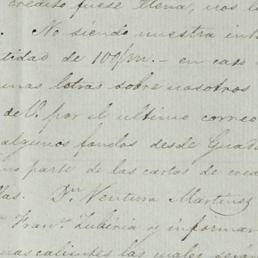 crédito fuese llena, nos
No siendo nuestra in
tidad de 100/m.- en caso
unas letras sobre nosotros
del º. por el ultimo correo
algunos fondos desde Guad
na parte de las cartas de cre
las. Dn Ventura Martinez
Franco. Zubiria y informar
nascalientes las cuales serán